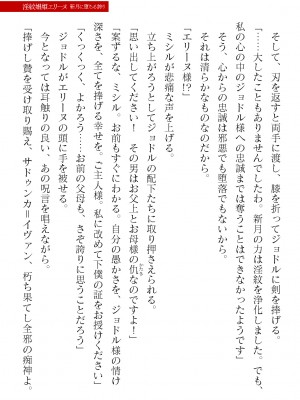 淫紋姫姫エリーヌ 新月に堕ちる誇り
そして、刃を返すと両手に渡し、膝を折ってジョドルに剣を捧げる。
「……大したこともありませんでしたわ。新月の力は淫紋を浄化しました。でも、
私の心の中のジョドル様への忠誠までは奪うことはできなかったようです」
そう、心からの忠誠は邪悪でも堕落でもないから。
それは清らかなものなのだから。
「エリーヌ様!?」
ミシルが悲痛な声を上げる。
立ち上がろうとしてジョドルの配下たちに取り押さえられる。
「思い出してください！　その男はお父上とお母様の仇なのですよ！」
「案ずるな、ミシル。お前もすぐにわかる。自分の愚かさを、ジョドル様の情け
深さを。全てを捧げる幸せを。ご主人様。私に改めて下僕の証をお授けください」
「くっくっく、よかろう……お前の父母も、さぞ誇りに思うことだろう」
ジョドルがエリーヌの顔に手を被せる。
今となっては耳触りの良い、あの呪言を唱えながら。
「捧げし贄を受け取り賜え、サドゥン・カーイヴァン、朽ち果てし全邪の痴神よ。